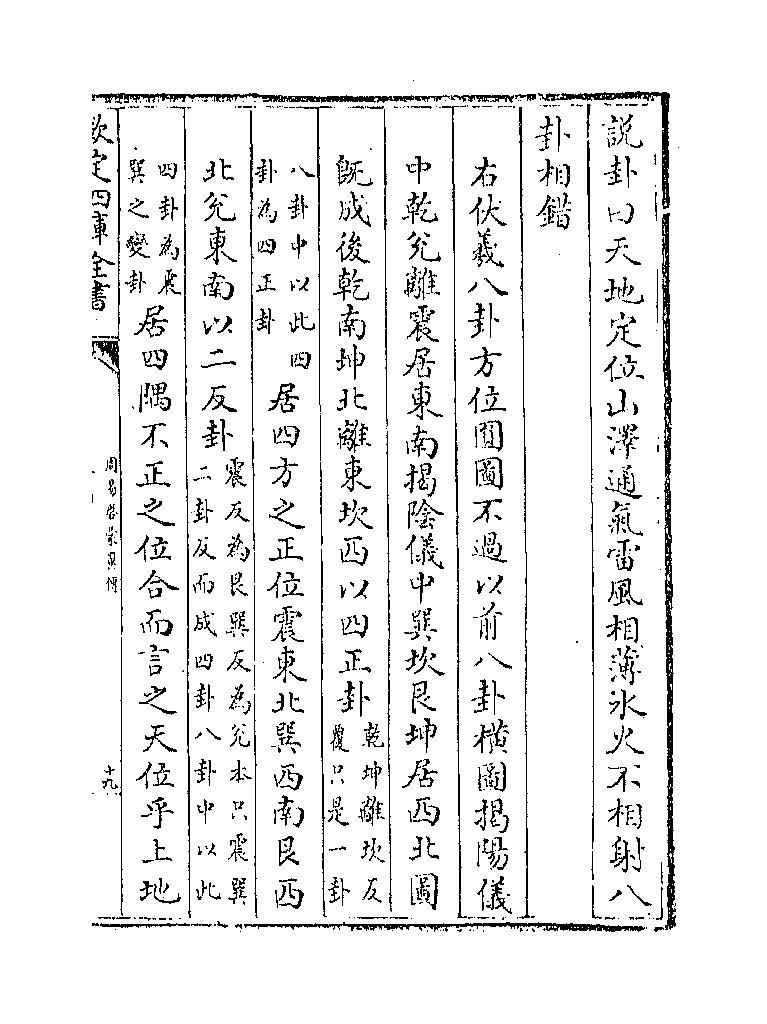 說卦曰天地定位山澤通氣雷風相薄水火不相射八
卦相錯
右伏羲八卦方位圓圖不過以前八卦橫圖揭陽儀
中乾兌離震居東南揭陰儀中巽坎艮坤居西北圖
旣成後乾南坤北離東坎西以四正卦乾坤離坎反覆只是一卦
八卦中以此四卦為四正卦居四方之正位震東北巽西南艮西
北兌東南以二反卦震反為艮巽反為兌本只震巽二卦反而成四卦八卦中以此
四卦為震巽之變卦居四隅不正之位合而言之天位乎上地
欽定四庫全書
周易啓蒙翼傳
十九